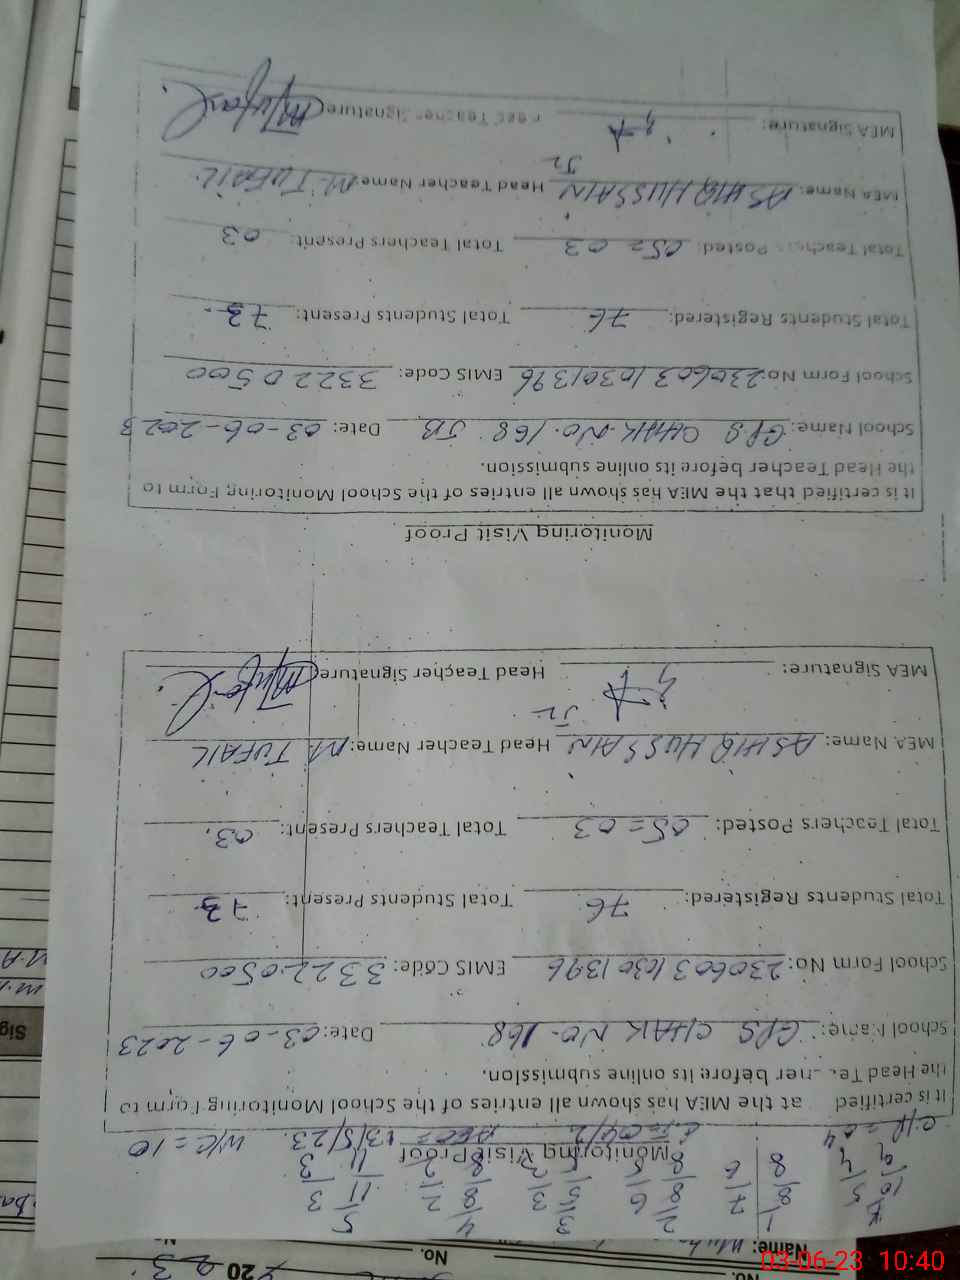 No.
No.
20
Name:
5 3
11 3
11 3
4 2
8 2
8 2
3 3
5 3
2 6
8 6
8 5
7
6
1
8
8
5
10 4
9
W/C = 10
C/R = 04
Monitoring Visit Proof
It is certified at the MEA has shown all entries of the School Monitoring Form to
the Head Te ner before its online submission.
School Name: GPS CHAK NO. 168 Date: 03-06-2023
School Form No: 23060310301396 EMIS Code: 33220500
Total Students Registered: 76 Total Students Present: 73
Total Teachers Posted: 05 = 03 Total Teachers Present: 03.
MEA Name: ASHIQ HUSSAIN Head Teacher Name: M TUFAIL
MEA Signature: Head Teacher Signature M Tufail
Monitoring Visit Proof
It is certified that the MEA has shown all entries of the School Monitoring Form to
the Head Teacher before its online submission.
School Name: GPS CHAK NO. 168 JB Date: 03-06-2023
School Form No: 23060310301396 EMIS Code: 33220500
Total Students Registered: 76 Total Students Present: 73
Total Teachers Posted: 05 = 03 Total Teachers Present: 03
MEA Name: ASHIQ HUSSAIN Head Teacher Name M. TUFAIL
MEA Signature: Teacher Signature M Tufail
Sig
03-06-23 10:40